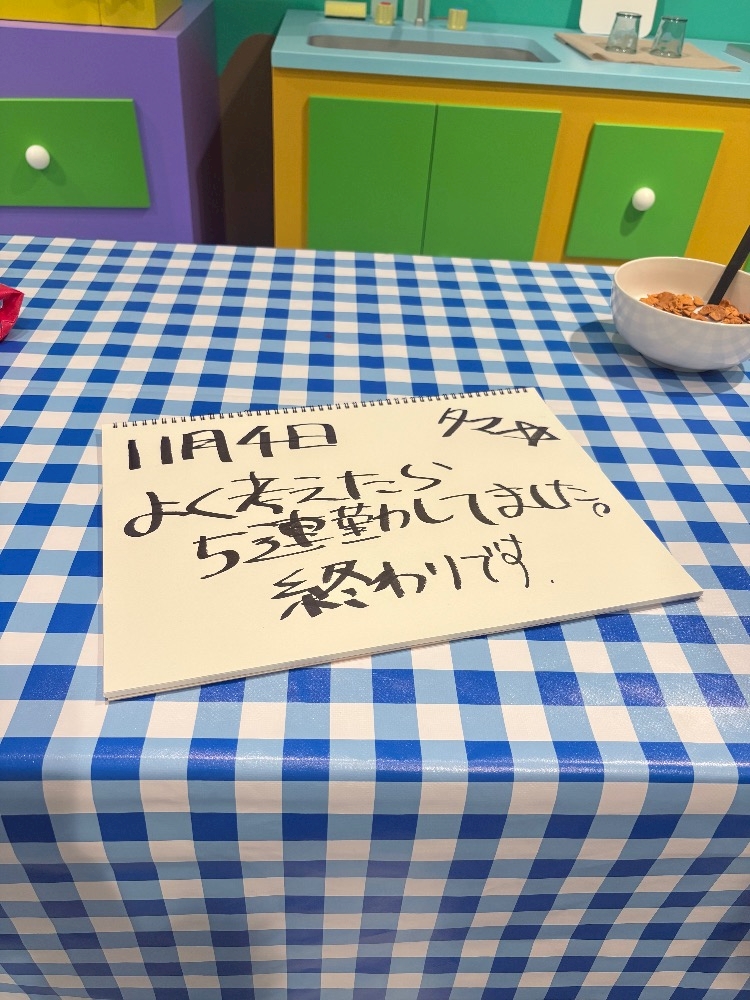 11月4日 タマ☆
よく考えたら
5連勤してました。
終わりです.